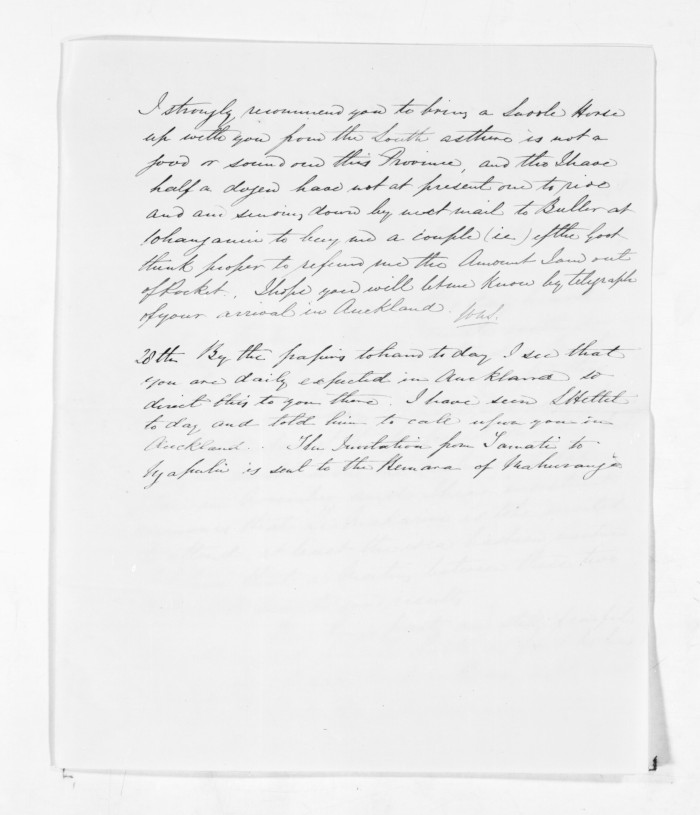 I strongly recommend you to bring a Saddle Horse
up with you from the South as there is not a
good or sound one this Province, and tho I have
half a dozen have not at present one to ride
and am sending down by next mail to Buller at
Whanganui to buy me a couple (ie) if the Govt
think proper to refund me the Amount I am out
of Pocket. I hope you will let me Know by telegraph
of your arrival in Auckland.
28th By the papers to hand to day I see that
you are daily expected in Auckland so
direct this to you there. I have seen S Hettit
to day and told him to call upon you in
Auckland. The Invitation from Tamati to
Ngapuhi is sent to Te Hemara of Mahurangi